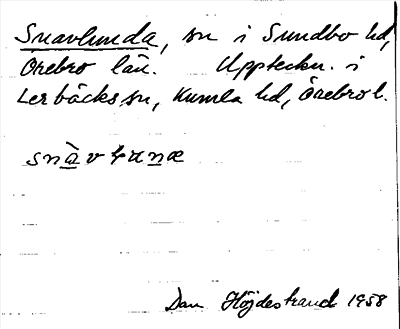 Snavlunda, sn i Sundbo hd,
Örebro län. Uppteckn. i
Lerbäcks sn, Kumla hd, Örebro l.
Dan Höjdestrand 1958